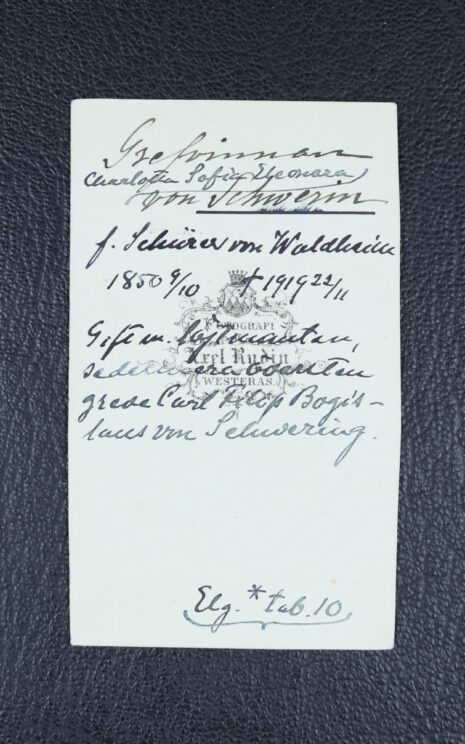 Grefvinnan
Charlotta Sofia Eleonora
von Schwerin
f. Schürer von Waldheim
1850 9/10 † 1919 22/11
Gift m. löjtnanten,
sedermera översten
greve Carl Filip Bogis-
laus von Schwering.
FOTOGRAFI
Axel Rudin
WESTERAS.
Elg. * tab. 10